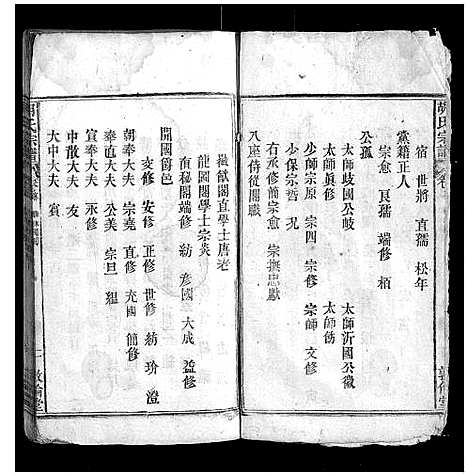 胡氏宗譜
宿 世將 直孺 松年
黨籍正人
宗愈 良孺 端修 栢
公孤
太師歧國公岐 太師沂國公徽
太師眞修 太師
少師宗原 宗四 宗修 宗師 文修
少保宗哲 況
八座侍從閣職
右宗忠 前修 宗愈 宗撫 忠獻
徽猷閣直學士唐老
龍圖閣學士宗炎
右秘閣端修 紡 彥國 大成 益修
開國爵邑
交修 安修 正修 世修 紡 玠 澄
朝奉大夫 宗堯 直修 充國 簡修
奉直大夫 公美 宗旦 繩
寅奉大夫 永修
中散大夫 友
大中大夫 賓
敦倫堂